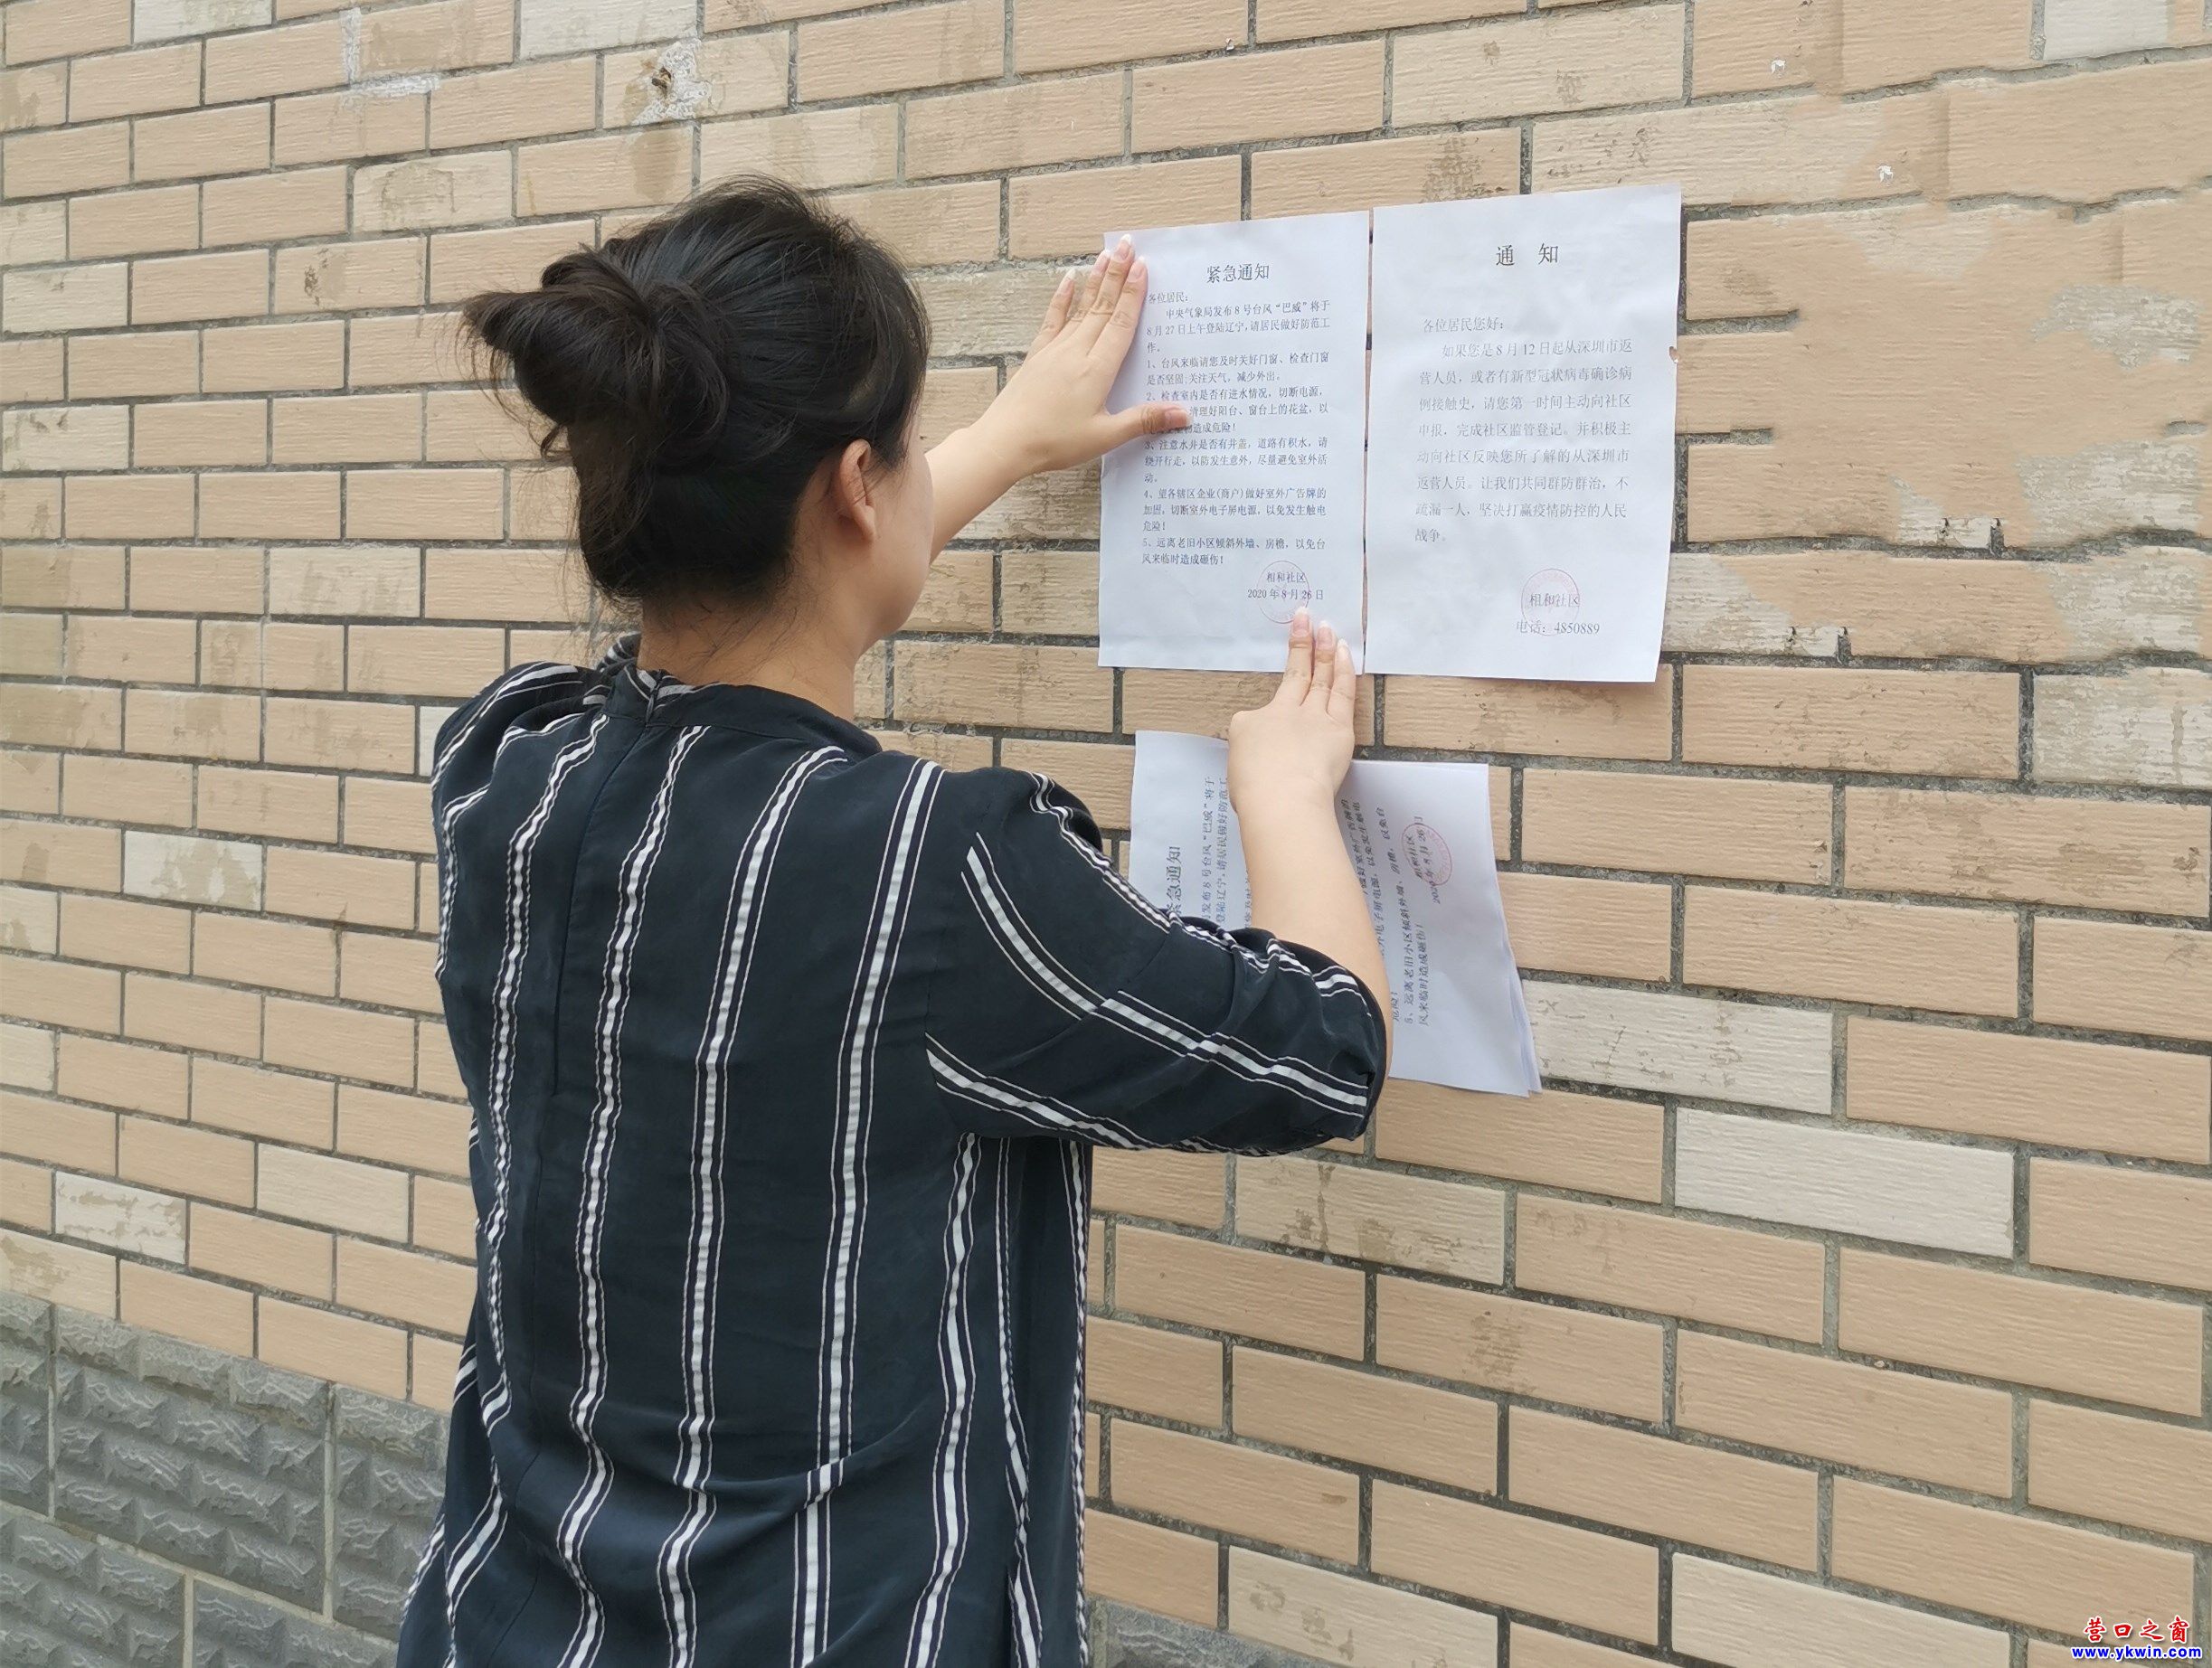 紧急通知
各位居民：
中央气象局发布8号台风“巴威”将于
8月27日上午登陆辽宁，请居民做好防范工
作。
1、台风来临请您及时关好门窗、检查门窗
是否坚固，关注天气，减少外出。
2、检查室内是否有进水情况，切断电源，
清理好阳台、窗台上的花盆，以
造成危险！
3、注意水井是否有井盖，道路有积水，请
绕开行走，以防发生意外，尽量避免室外活
动。
4、望各辖区企业(商户)做好室外广告牌的
加固，切断室外电子屏电源，以免发生触电
危险！
5、远离老旧小区倾斜外墙、房檐，以免台
风来临时造成砸伤！
相和社区
2020年8月26日
通 知
各位居民您好：
如果您是8月12日起从深圳市返
营人员，或者有新型冠状病毒确诊病
例接触史，请您第一时间主动向社区
申报，完成社区监管登记。并积极主
动向社区反映您所了解的从深圳市
返营人员。让我们共同群防群治，不
疏漏一人，坚决打赢疫情防控的人民
战争。
相和社区
电话：4850889
紧急通知
发布8号台风“巴威”将于
登陆辽宁，请居民做好防范工
做好室外广告牌的
外电子屏电源，以免发生触电
危险！
5、远离老旧小区倾斜外墙、房檐，以免台
风来临时造成砸伤！
相和社区
2020年8月26日
营口之窗
www.ykwin.com